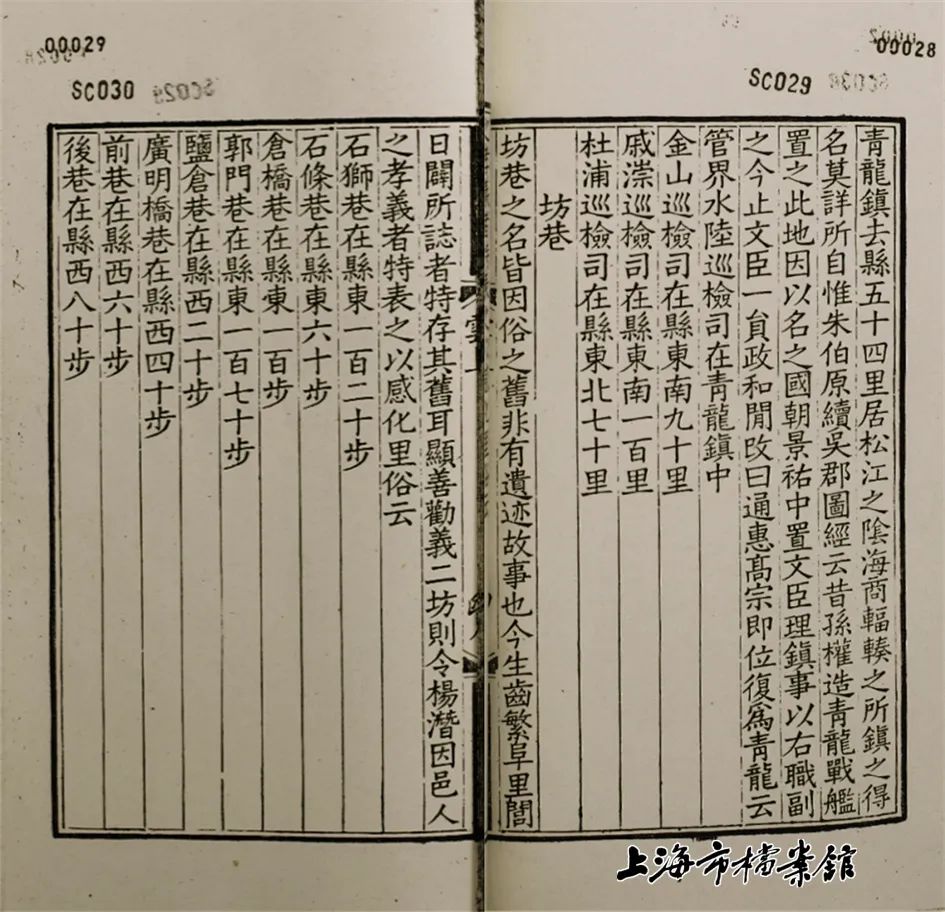 00028
SC029
青龍鎮去縣五十四里居松江之隂海商輻輳之所鎮之得
名莫詳所自惟朱伯原續吳郡圖經云昔孫權造青龍戰艦
置之此地因以名之國朝景祐中置文臣理鎮事以右職副
之今止文臣一員政和間改曰通惠髙宗即位復爲青龍云
管界水陸巡檢司在青龍鎮中
金山巡檢司在縣東南九十里
戚漴巡檢司在縣東南一百里
杜浦巡檢司在縣東北七十里
坊巷
坊巷之名皆因俗之舊非有遺迹故事也今生齒繁阜里閭
00029
SC030
日闢所誌者特存其舊耳顯善勸義二坊則令楊潛因邑人
之孝義者特表之以感化里俗云
石獅巷在縣東一百二十步
石條巷在縣東六十步
倉橋巷在縣東一百步
郭門巷在縣東一百七十步
鹽倉巷在縣西二十步
廣明橋巷在縣西四十步
前巷在縣西六十步
後巷在縣西八十步
上海市檔案館